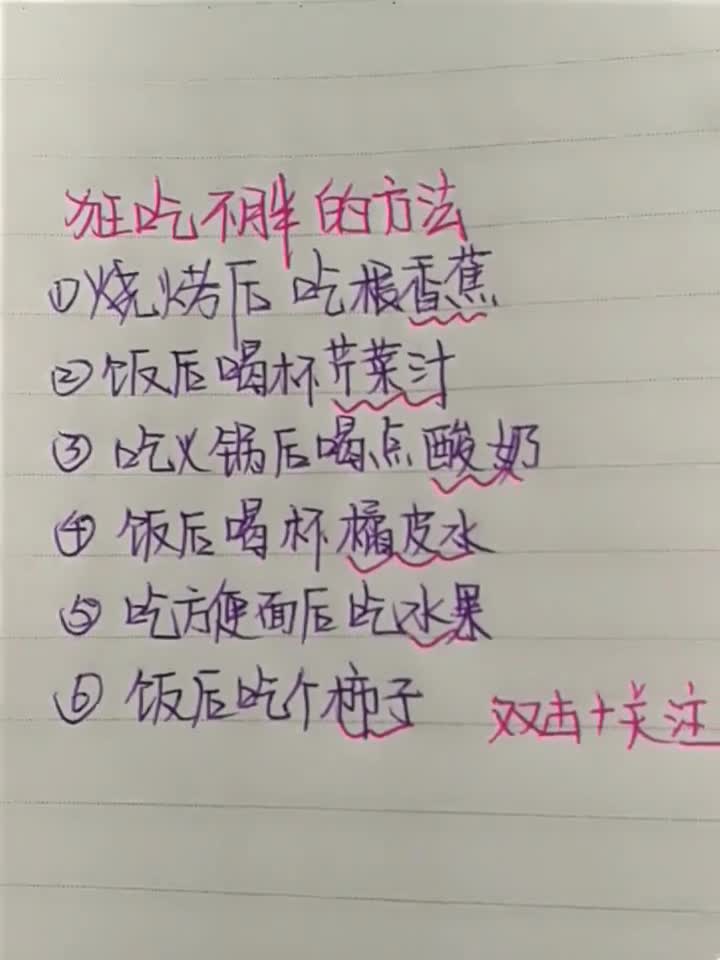 狂吃不胖的方法
①烧烤后吃根香蕉
②饭后喝杯芹菜汁
③吃火锅后喝点酸奶
④饭后喝杯橘皮水
⑤吃方便面后吃水果
⑥饭后吃个柿子
双击+关注